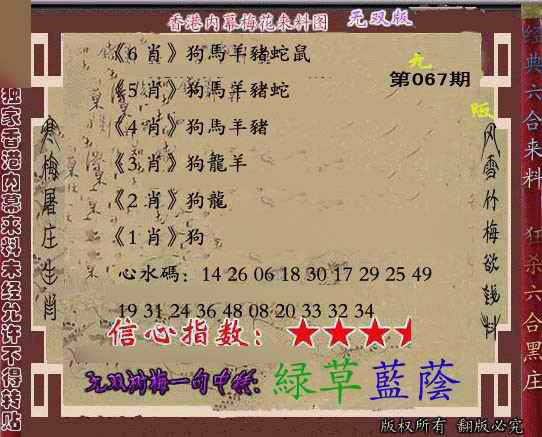 香港内幕梅花来料图 无双版
《6 肖》狗馬羊豬蛇鼠
九
第067期
《5 肖》狗馬羊豬蛇
版
《4 肖》狗馬羊豬
《3 肖》狗龍羊
《2 肖》狗龍
《1 肖》狗
心水碼：14 26 06 18 30 17 29 25 49
19 31 24 36 48 08 20 33 32 34
信心指数：★★★
无双 梅一句中特：綠草藍蔭
独家香港内幕来料未经允许不得转贴
寒梅屠庄生肖
风雪竹梅欲钱料
经典六合来料 狂杀六合黑庄
版权所有 翻版必究